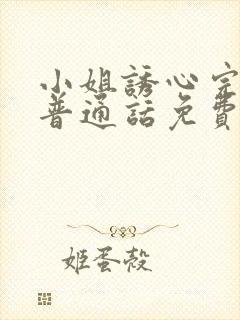 小姐誘心完
普通話免費
姬蛋殼